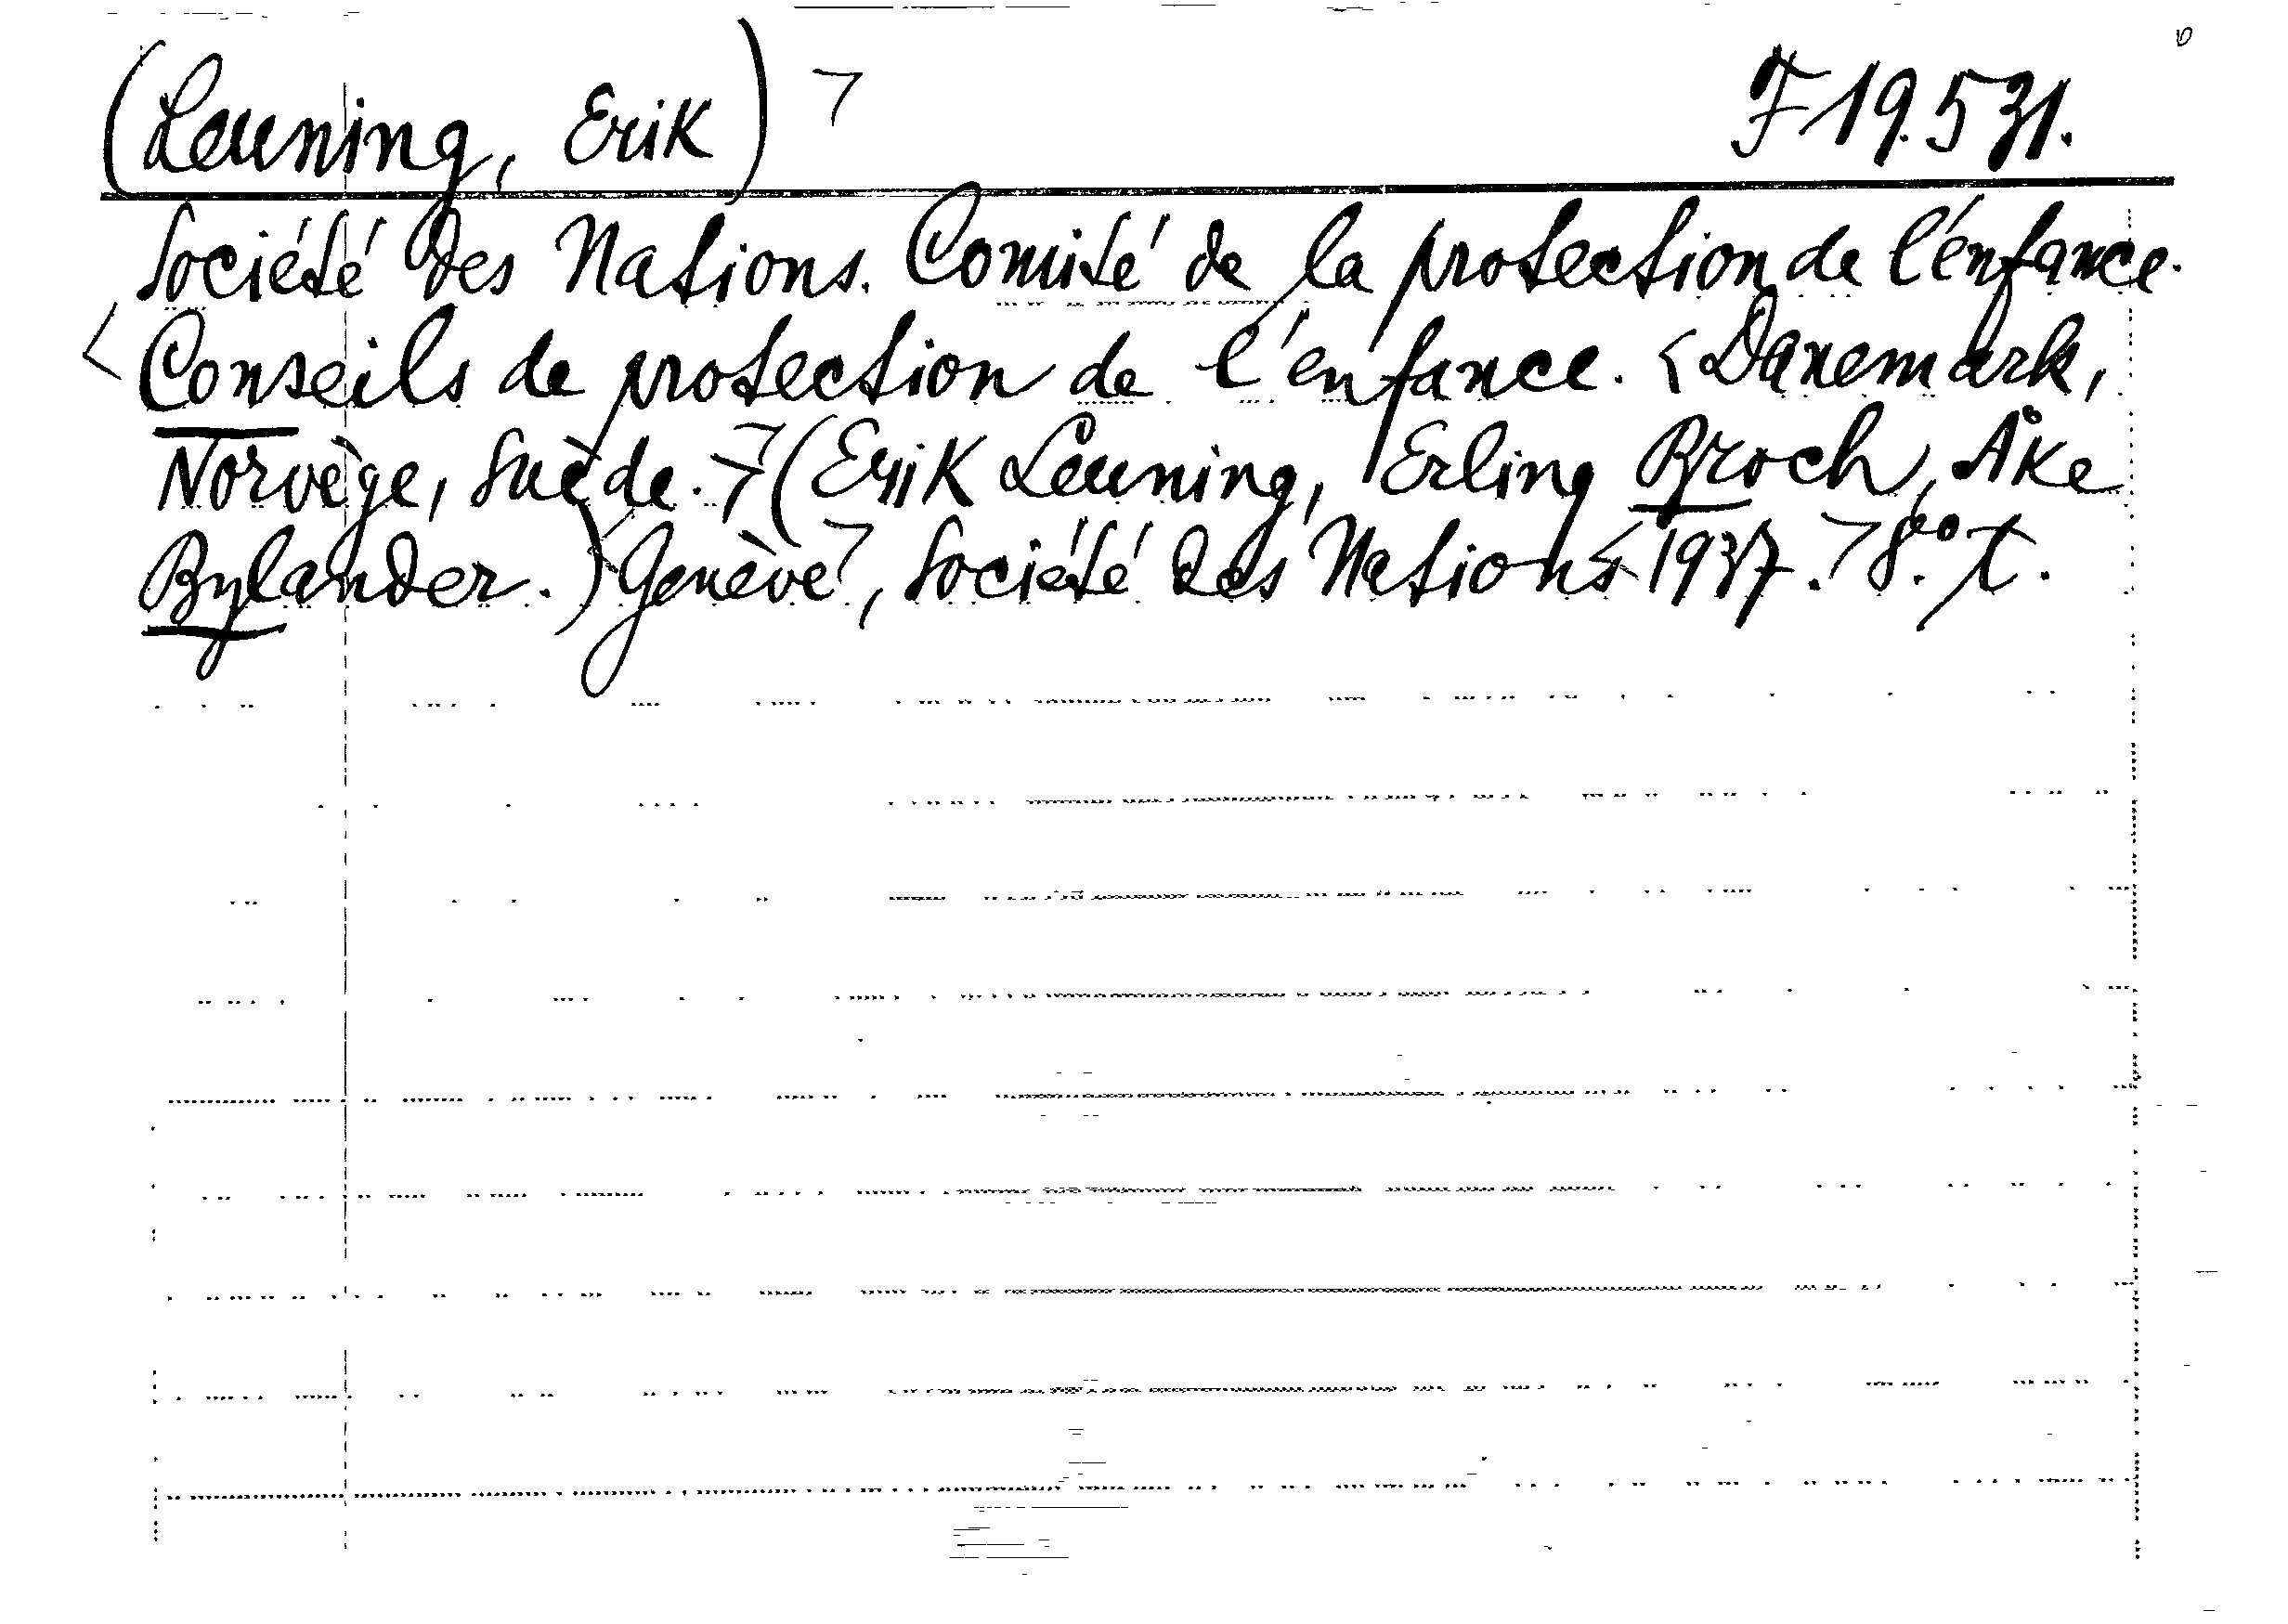 (Leuning, Erik) > F 19.531.
Société des Nations. Comité de la protection de l'enfance.
< Conseils de protection de l'enfance. < Danemark,
Norvège, Suède. >> (Erik Leuning, Erling Broch, Åke
Bylander.) < Genève >, Société des Nations < 1937. > 8:o X.